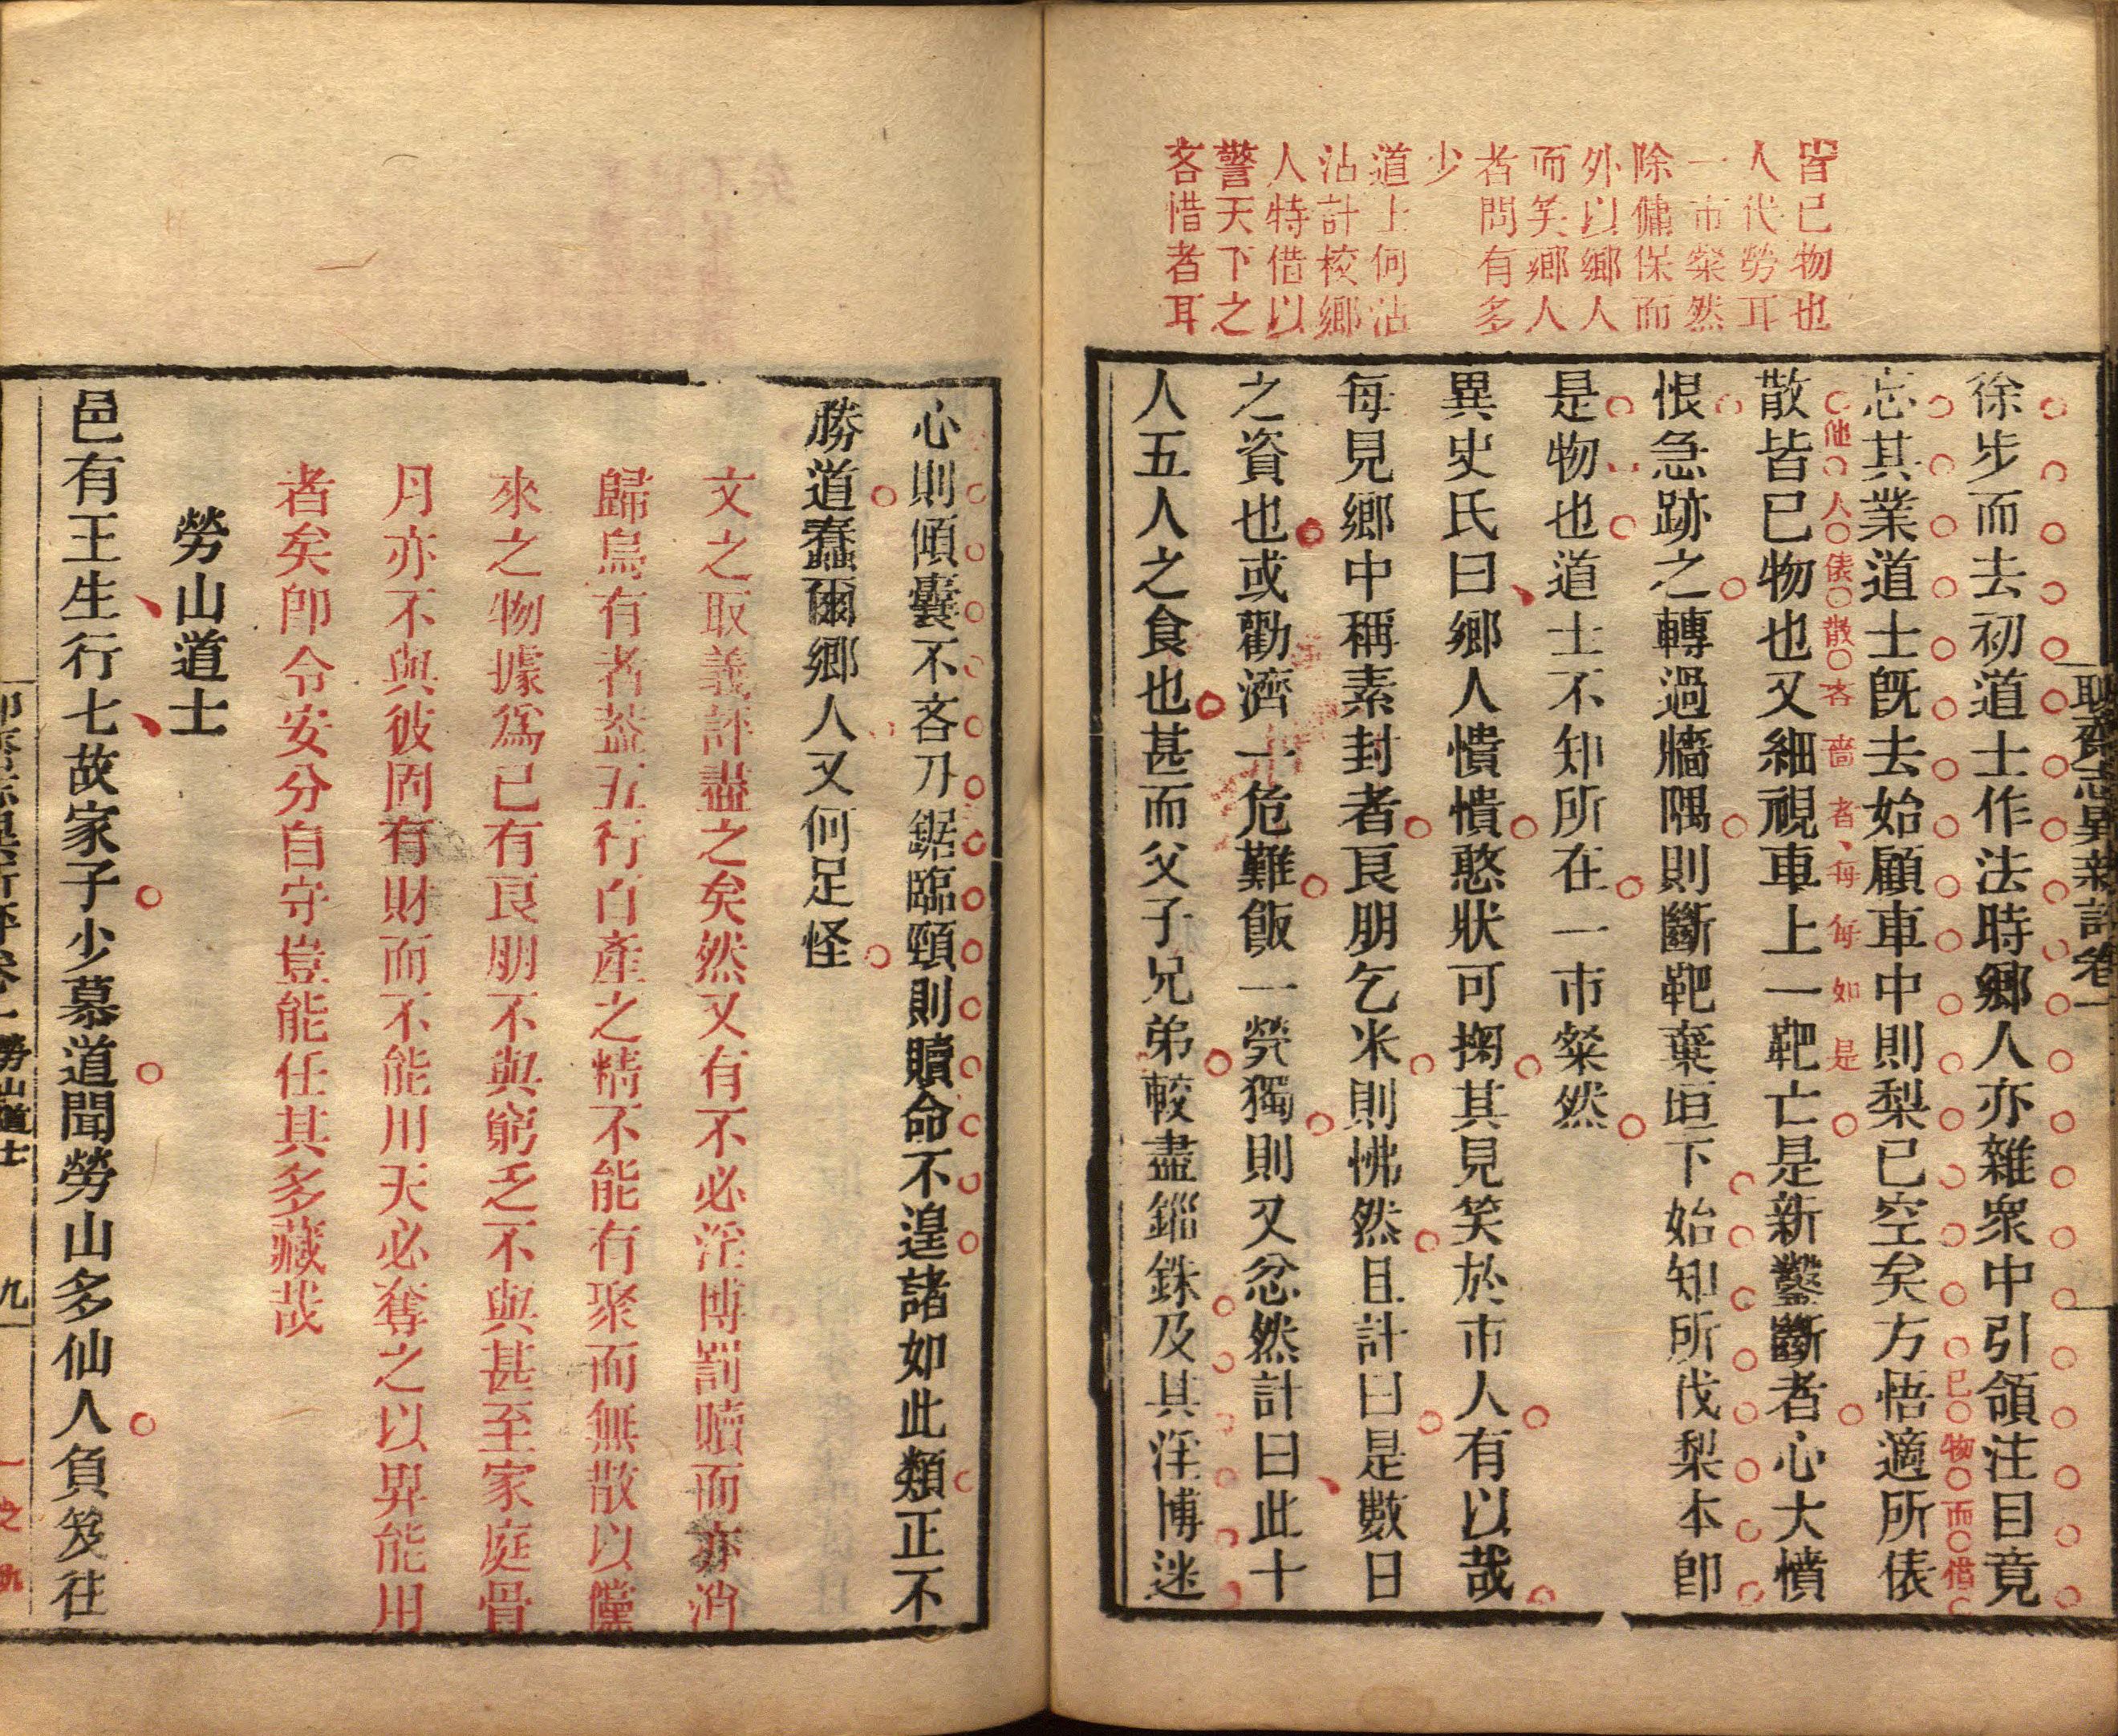 皆已物也
人代勞耳
一市粲然
除傭保而
外以鄉人
而笑鄉人
者問有多
少
道上何沾
沾計校鄉
人特借以
警天下之
吝惜者耳
聊齋志異新評卷一
徐步而去初道士作法時鄉人亦雜衆中引領注目竟
忘其業道士旣去始顧車中則梨已空矣方悟適所俵
已物而借
散皆已物也又細視車上一靶亡是新鑿斷者心大憤
他人俵散吝嗇者每每如是
恨急跡之轉過牆隅則斷靶棄垣下始知所伐梨本卽
是物也道士不知所在一市粲然
異史氏曰鄉人憒憒憨狀可掬其見笑於市人有以哉
每見鄉中稱素封者良朋乞米則怫然且計曰是數日
之資也或勸濟一危難飯一煢獨則又忿然計曰此十
人五人之食也甚而父子兄弟較盡錙銖及其淫博迷
心則傾囊不吝刀鋸臨頸則贖命不遑諸如此類正不
勝道蠢爾鄉人又何足怪
文之取義評盡之矣然又有不必淫博罰贖而亦消
歸烏有者蓋五行百產之精不能有聚而無散以儻
來之物據爲已有良朋不與窮乏不與甚至家庭骨
月亦不與彼罔有財而不能用天必奪之以畀能用
者矣卽令安分自守豈能任其多藏哉
勞山道士
邑有王生行七故家子少慕道聞勞山多仙人負笈往
勞山道士
九
一之九